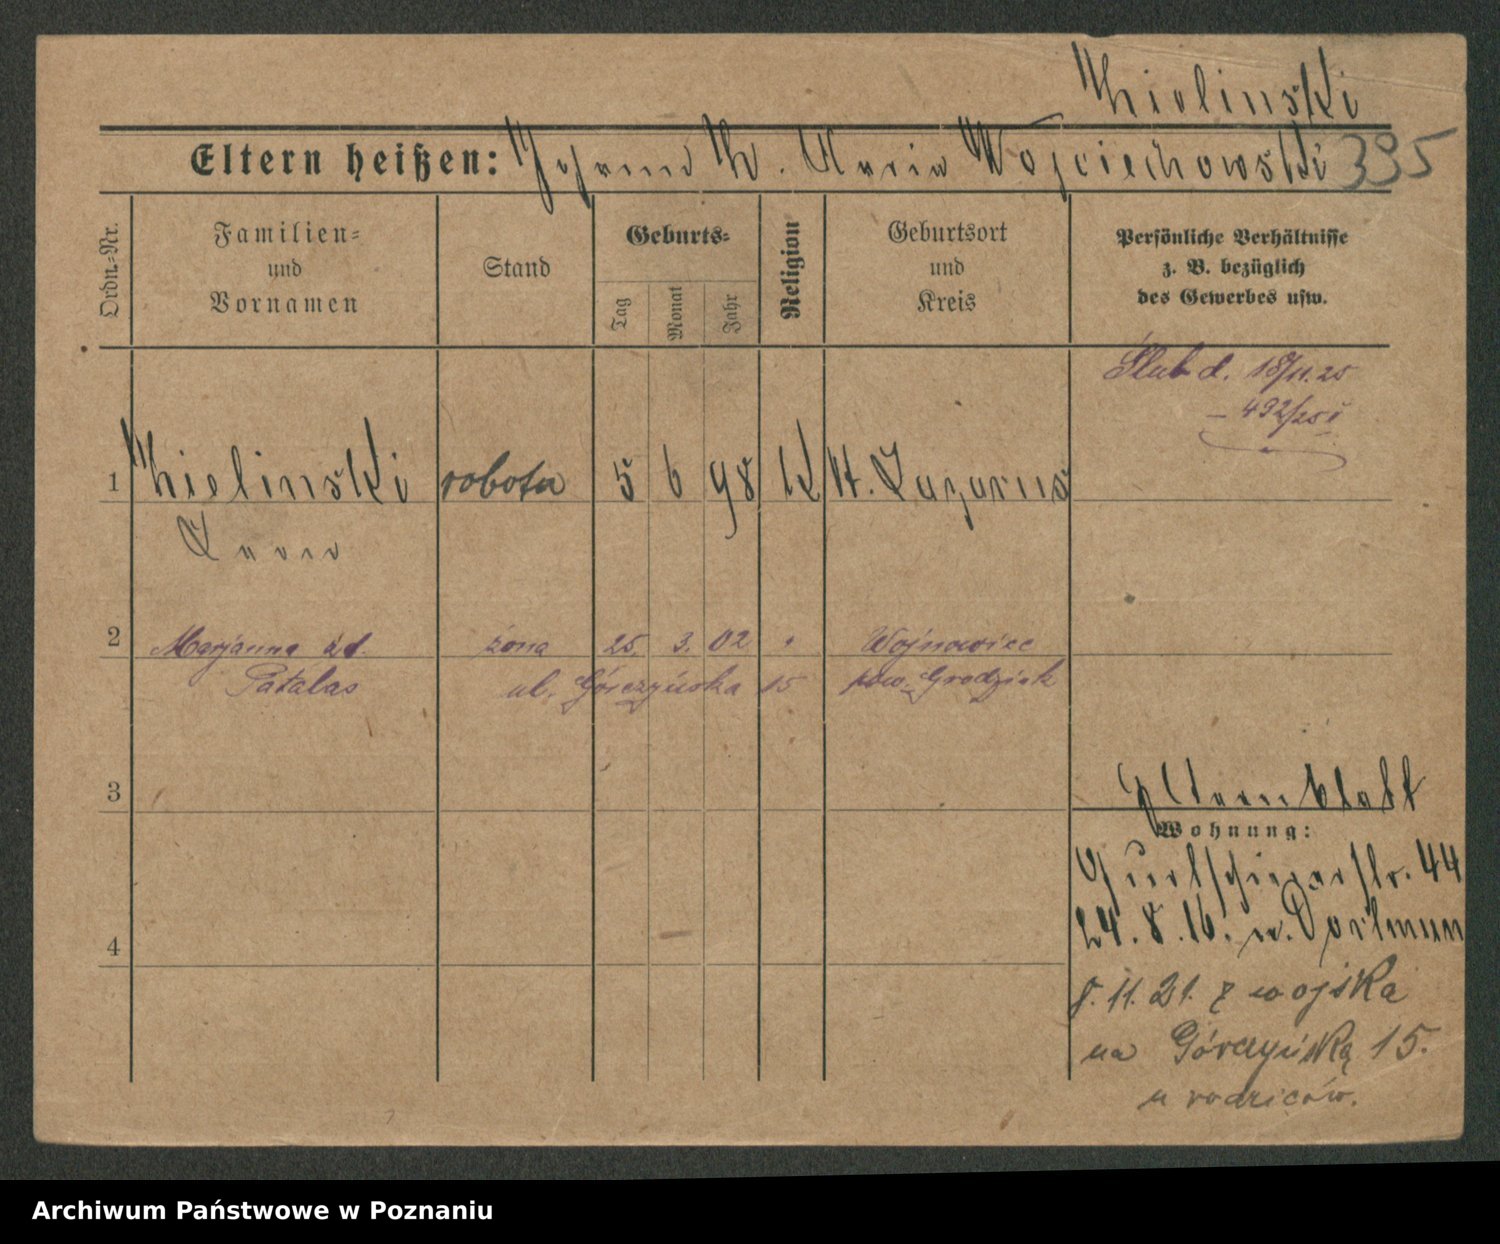 Thielinski
Eltern heißen: Johann Th. Maria Wojciechowski 395
Ordn.-Nr.
Familien-
und
Vornamen
Stand
Geburts-
Tag
Monat
Jahr
Religion
Geburtsort
und
Kreis
Persönliche Verhältnisse
z. B. bezüglich
des Gewerbes usw.
Ślub d. 18/11.25
492/25
1 Thielinski robotn 5 6 98 K St. Lazarus
2 Marjanna żona 25. 3. 02 Wojnowice
Patalas ul. Górczyńska 15 pow. Grodzisk
3
Elternblatt
Wohnung:
Gurtschinerstr. 44
24. 8. 16. n. Dortmun
4
8. 11. 21. z wojska
na Górczyńską 15.
u rodziców.
Archiwum Państwowe w Poznaniu